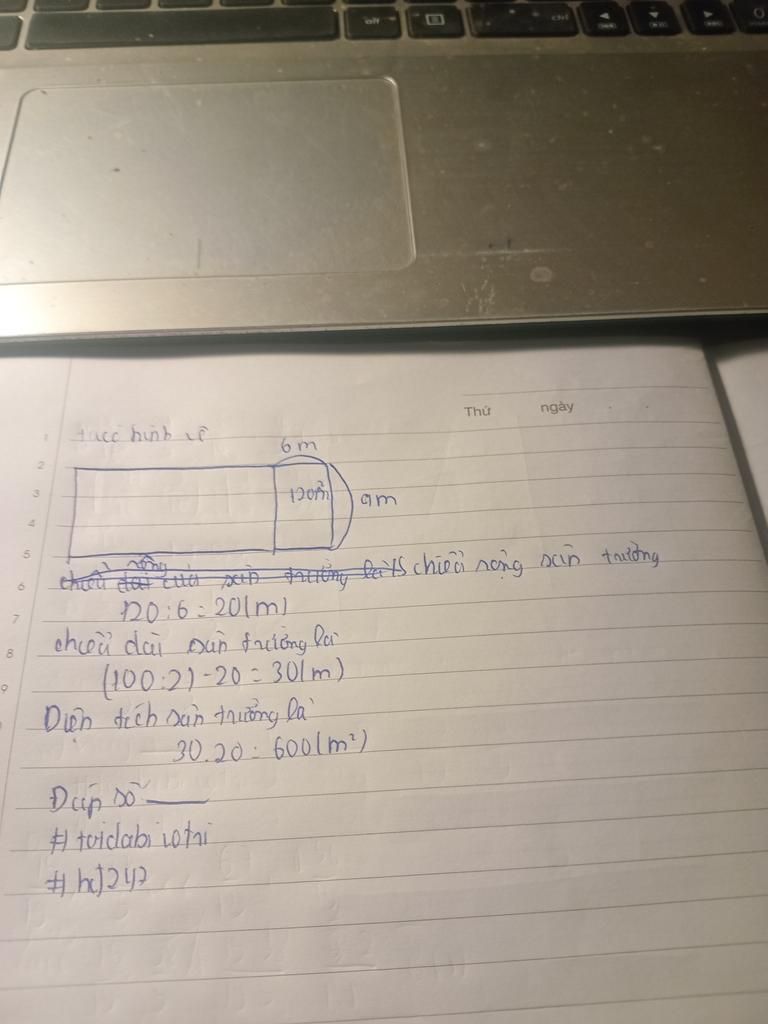 Thứ ngày
ta có hình vẽ
6m
120m²
am
chiều dài rộng của sân trường là chiều rộng sân trường
120:6=20(m)
chiều dài sân trường là
(100:2)-20=30(m)
Diện tích sân trường là
30.20=600(m²)
Đáp số
#toidabiothi
#hJ247
1
2
3
4
5
6
7
8
9